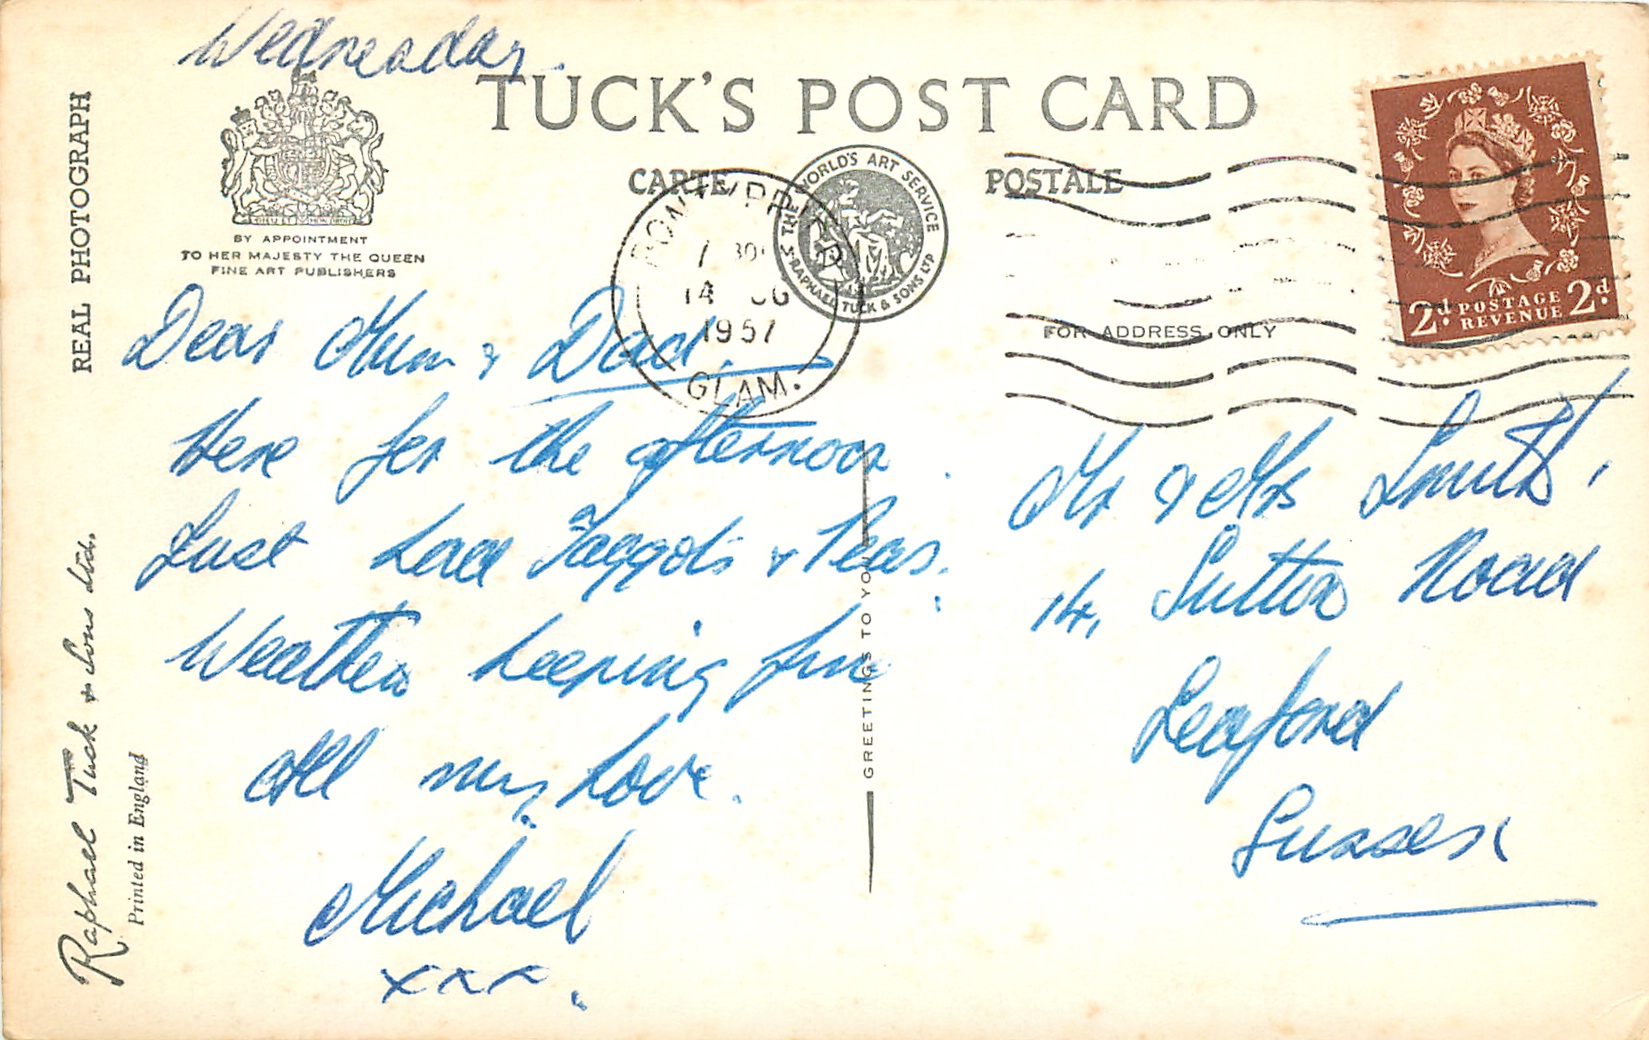 Wednesday.
TUCK'S POST CARD
CARTE POSTALE
REAL PHOTOGRAPH
BY APPOINTMENT
TO HER MAJESTY THE QUEEN
FINE ART PUBLISHERS
THE WORLD'S ART SERVICE
RAPHAEL TUCK & SONS LTD
PONTYPRIDD
14 UG
1957
GLAM.
FOR ADDRESS ONLY
2d. POSTAGE REVENUE 2d.
Dear Mum & Dad.
Here for the afternoon.
Just had Faggots & Peas.
Weather keeping fine
All my Love.
Michael
xxx.
GREETINGS TO YOU
Mr & Mrs Smith,
14, Sutton Road
Seaford
Sussex
Raphael Tuck & Sons Ltd.
Printed in England